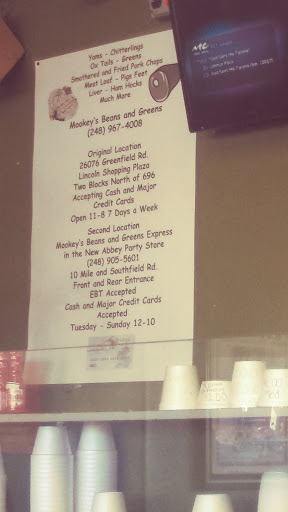 Yams - Chitterlings
Ox Tails - Greens
Smothered and Fried Pork Chops
Meat Loaf - Pigs Feet
Liver - Ham Hocks
Much More
Mookey's Beans and Greens
(248) 967-4008
Original Location
26076 Greenfield Rd.
Lincoln Shopping Plaza
Two Blocks North of 696
Accepting Cash and Major
Credit Cards
Open 11-8 7 Days a Week
Second Location
Mookey's Beans and Greens Express
in the New Abbey Party Store
(248) 905-5601
10 Mile and Southfield Rd.
Front and Rear Entrance
EBT Accepted
Cash and Major Credit Cards
Accepted
Tuesday - Sunday 12-10
MC